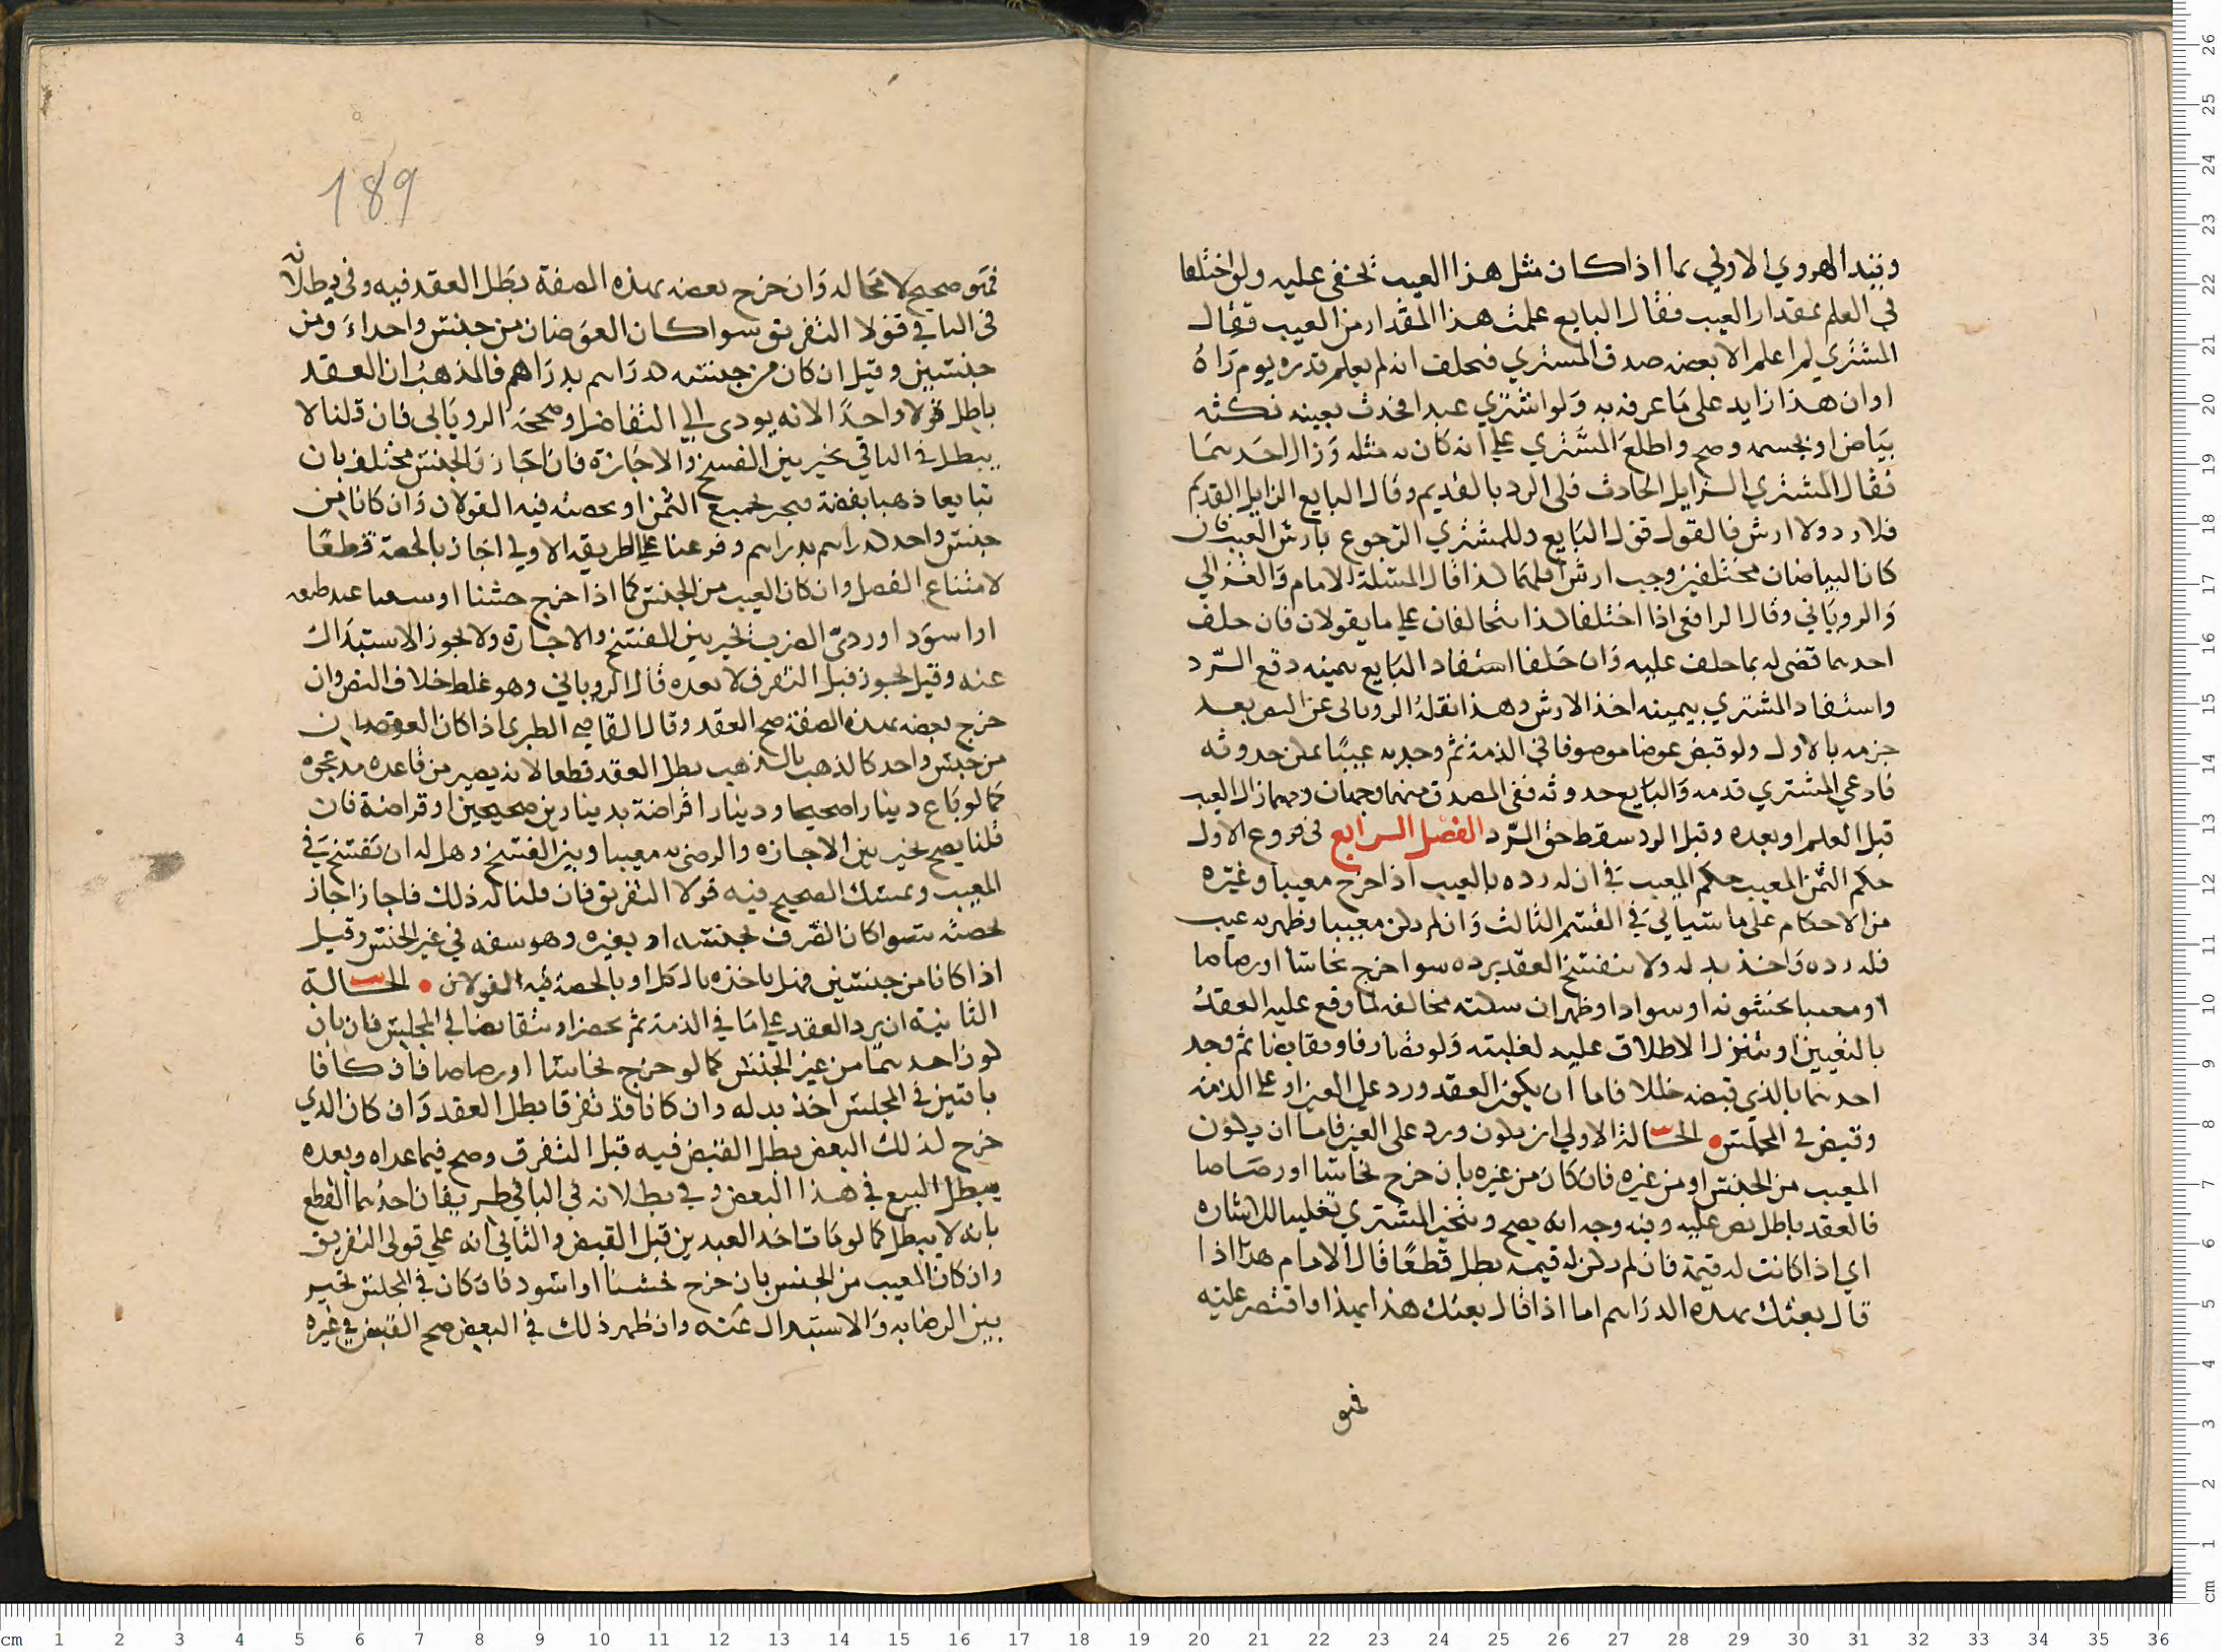 وقيد الهروي الاولي بما اذا كان مثل هذا العيب يخفى عليه ولو اختلفا
في العلم بمقدار العيب فقال البايع علمت هذا المقدار من العيب فقال
المشتري لم اعلم الا بعضه صدق المشتري فيحلف انه لم يعلم قدره يوم رآه
او ان هذا زايد على ما عرفه به ولو اشترى عبدا فحدث بعينه نكتة
بياض او بجسمه وضح واطلع المشتري على انه كان به مثله وزال احدهما
فقال المشتري الزايل الحادث فلي الرد بالقديم وقال البايع الزايل القديم
فلا رد ولا ارش فالقول قول البايع وللمشتري الرجوع بارش العيب فان
كانا البياضان مختلفين وجب ارش اقلهما كذا قال المسئلة الامام والغزالي
والروياني وقال الرافعي اذا اختلفا كذا يتحالفان على ما يقولان فان حلف
احدهما قضى له بما حلف عليه وان حلفا استفاد البايع بيمينه دفع الرد
واستفاد المشتري بيمينه اخذ الارش وهذا نقله الروياني عن النص بعد
جزمه بالاول ولو قبض عوضا موصوفا في الذمة ثم وجد به عيبا يمكن حدوثه
فادعى المشتري قدمه والبايع حدوثه ففي المصدق منهما وجهان ومهما زال العيب
قبل العلم او بعده وقبل الرد سقط حق الرد الفصل الرابع في فروع الاول
حكم الثمن المعيب حكم المعيب في ان له رده بالعيب اذا خرج معيبا وغيره
من الاحكام على ما سياتي في القسم الثالث وان لم يكن معيبا وظهر به عيب
فله رده واخذ بدله ولا ينفسخ العقد برده سوا خرج نحاسا او رصاصا
او معيبا بخشونة او سواد او ظهر ان سكته مخالفه لما وقع عليه العقد
بالتعيين او بتنزل الاطلاق عليه لغلبته ولو تصارفا وتقابضا ثم وجد
احدهما بالذي قبضه خللا فاما ان يكون العقد ورد على العين او على الذمة
وقبض في المجلس الحالة الاولى ان يكون ورد على العين فاما ان يكون
المعيب من الجنس او من غيره فان كان من غيره بان خرج نحاسا او رصاصا
فالعقد باطل نص عليه وفيه وجه انه يصح ويتخير المشتري تغليبا للاشارة
اي اذا كانت له قيمة فان لم يكن له قيمه بطل قطعا قال الامام هذا اذا
قال بعتك بهذه الدراهم اما اذا قال بعتك هذا بهذا واقتصر عليه
فهو
189
فهو صحيح لا محاله وان خرج بعضه بهذه الصفة بطل العقد فيه وفي بطلانه
في الباقي قولا التفريق سوا كان العوضان من جنس واحد او من
جنسين وقيل ان كان من جنسه كدراهم بدراهم فالمذهب ان العقد
باطل قولا واحدا لانه يودي الى التفاضل وصححه الروياني فان قلنا لا
يبطل في الباقي تخير بين الفسخ والاجازة فان اجاز والجنس مختلف بان
تبايعا ذهبا بفضة فيجبر بجميع الثمن او بحصته فيه القولان وان كانا من
جنس واحد كدراهم بدراهم وفرعنا على الطريقه الاولى اجاز بالحصة قطعا
لامتناع الفصل وان كان العيب من الجنس كما اذا خرج خشنا او
او اسود او ردي الضرب تخير بين الفسخ والاجازة ولا يجوز الاستبدال
عنه وقيل يجوز قبل التفرق لا بعده قال الروياني وهو غلط خلاف النص وان
خرج بعضه بهذه الصفة صح العقد وقال القاضي الطبري اذا كان العوضان
من جنس واحد كالذهب بالذهب بطل العقد قطعا لانه يصير من قاعده مد عجوه
كما لو باع دينارا صحيحا ودينارا قراضة بدينارين صحيحين او قراضة فان
قلنا يصح تخير بين الاجازه والرضى به معيبا وبين الفسخ وهل له ان يفسخ في
المعيب ويمسك الصحيح فيه قولا التفريق فان قلنا له ذلك فاجاز اجاز
بحصته سوا كان الصرف بجنسه او بغيره وهو سفه في غير الجنس وقيل
اذا كانا من جنسين فهل ياخذه بالكل او بالحصة فيه القولان الحالة
الثانية ان يرد العقد على ما في الذمة ثم يحضر او يتقابضا في المجلس فان بان
كون احدهما من غير الجنس كما لو خرج نحاسا او رصاصا فان كانا
باقيين في المجلس اخذ بدله وان كانا قد تفرقا بطل العقد وان كان الذي
خرج كذلك البعض بطل القبض فيه قبل التفرق وصح فيما عداه وبعده
يبطل البيع في هذا البعض وفي بطلانه في الباقي طريقان احدهما القطع
بانه لا يبطل كما لو مات احد العبدين قبل القبض والثاني انه على قولي التفريق
وان كان المعيب من الجنس بان خرج خشنا او اسود فان كان في المجلس تخير
بين الرضا به والاستبدال عنه وان ظهر ذلك في البعض صح القبض في غيره